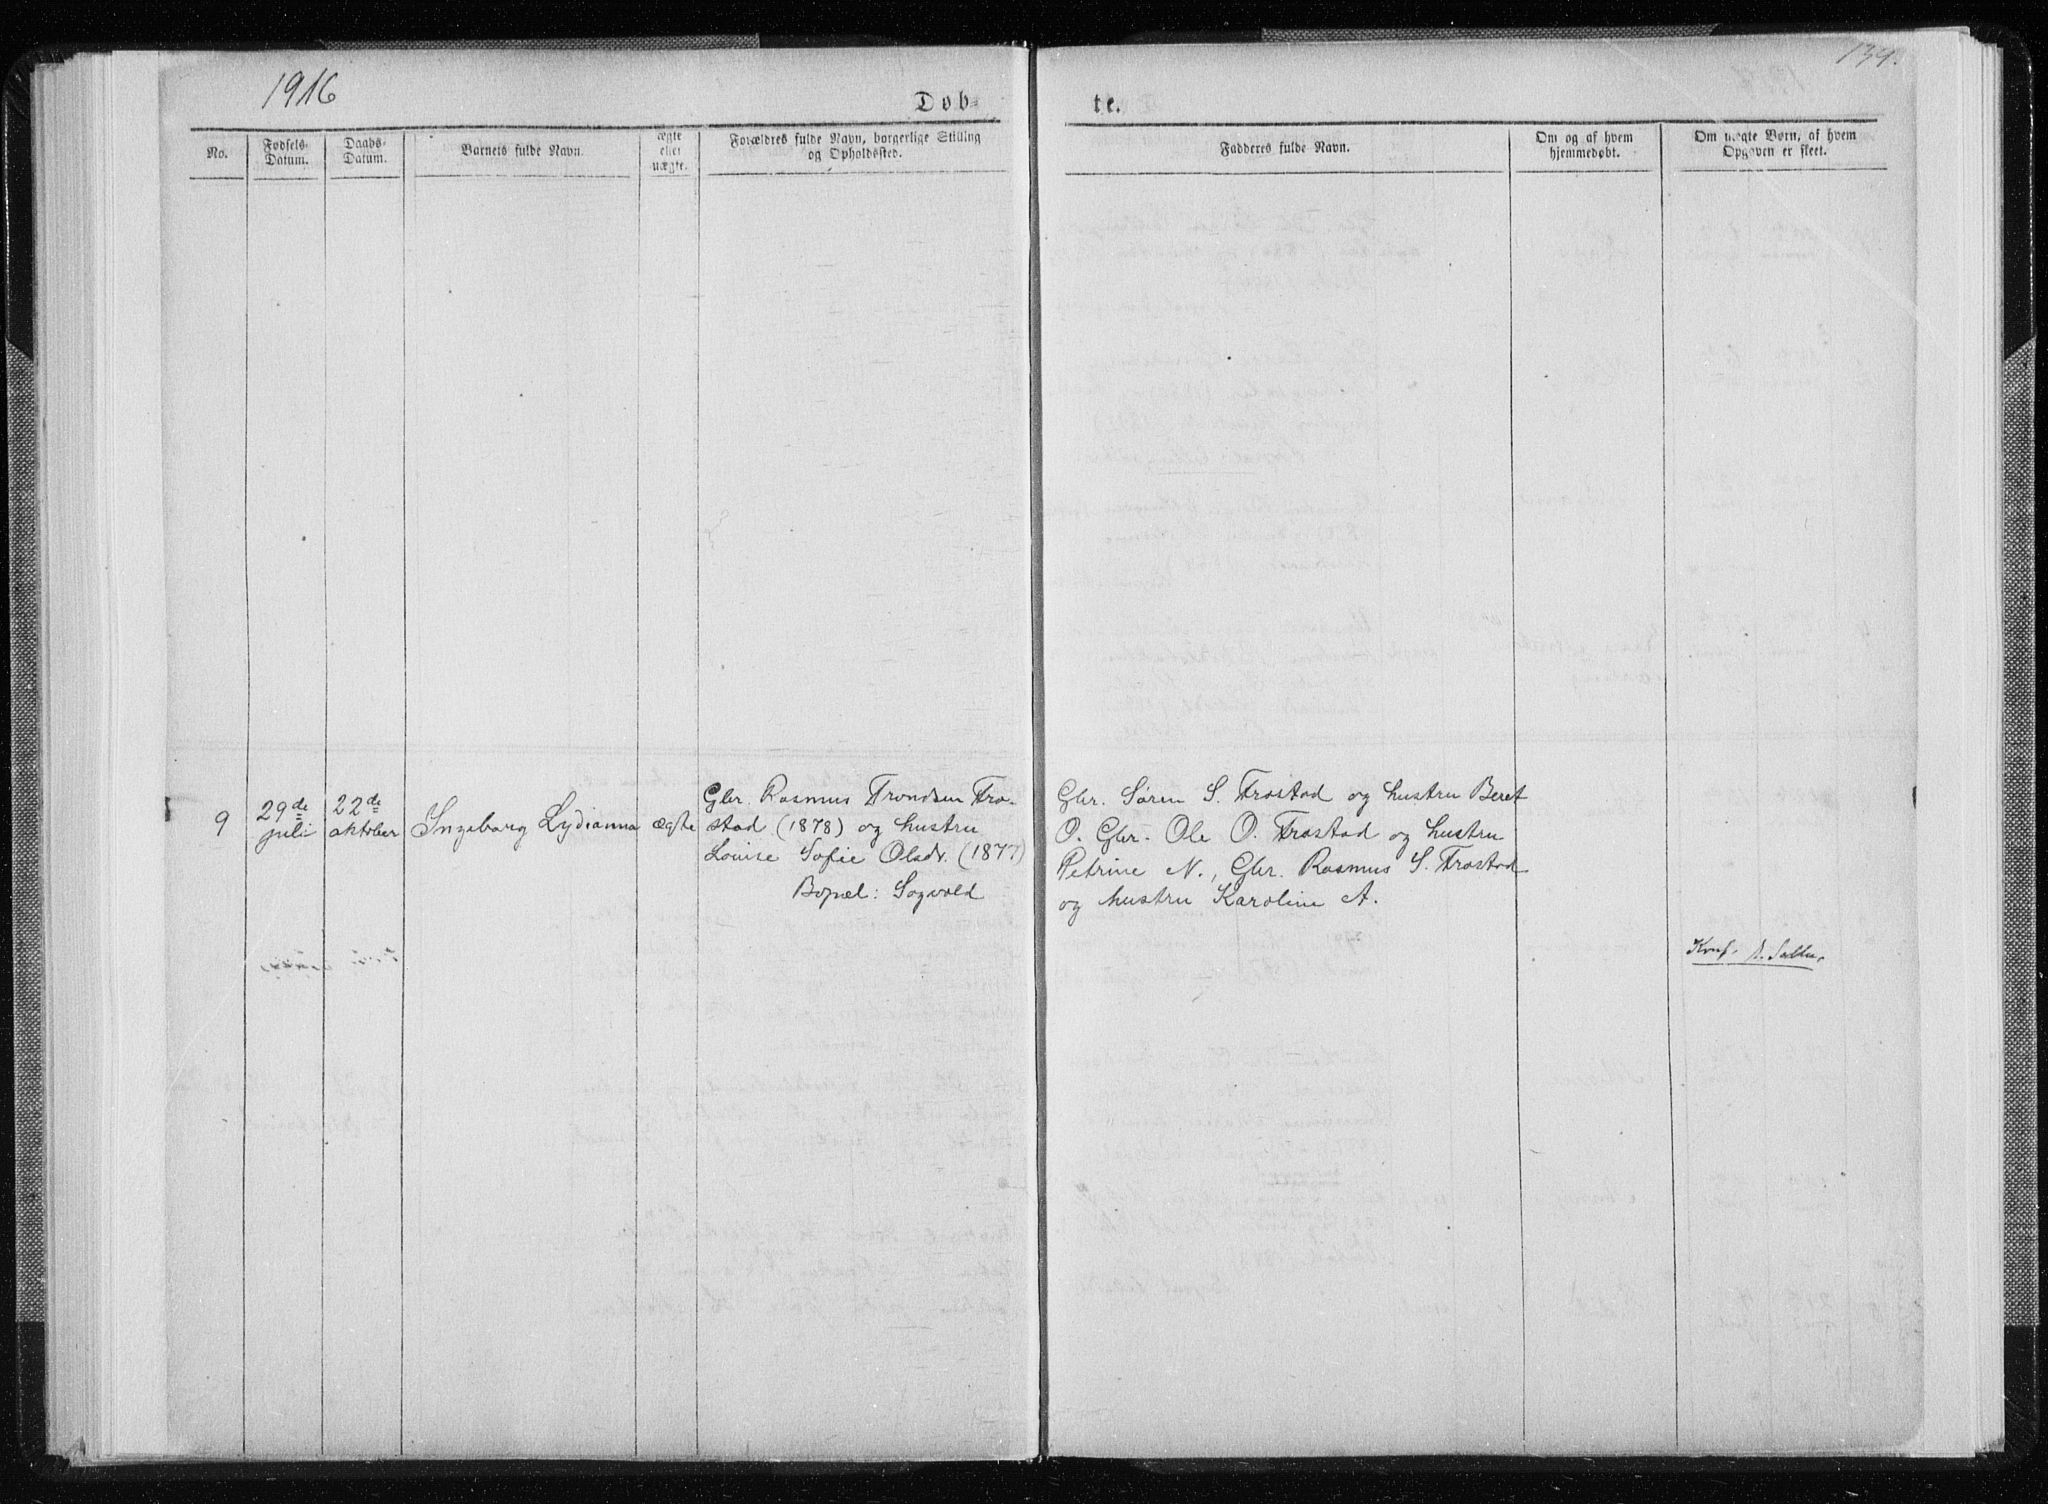 1916
134.
Døb-
te.
No.
Fødsels-
Datum.
Daabs-
Datum.
Barnets fulde Navn.
ægte
eller
uægte.
Forældres fulde Navn, borgerlige Stilling
og Opholdssted.
Fadderes fulde Navn.
Om og af hvem
hjemmedøbt.
Om uægte Børn, af hvem
Opgaven er skeet.
9
29de
juli
22de
oktober
Ingeborg Lydianna
ægte
Gbr. Rasmus Trondsen Fro-
stad (1878) og hustru
Louise Sofie Olsdr. (1877)
Bopæl: Sogvold
Gbr. Søren S. Frostad og hustru Beret
O. Gbr. Ole O. Frostad og hustru
Petrine N., Gbr. Rasmus S. Frostad
og hustru Karoline A.
Konf.